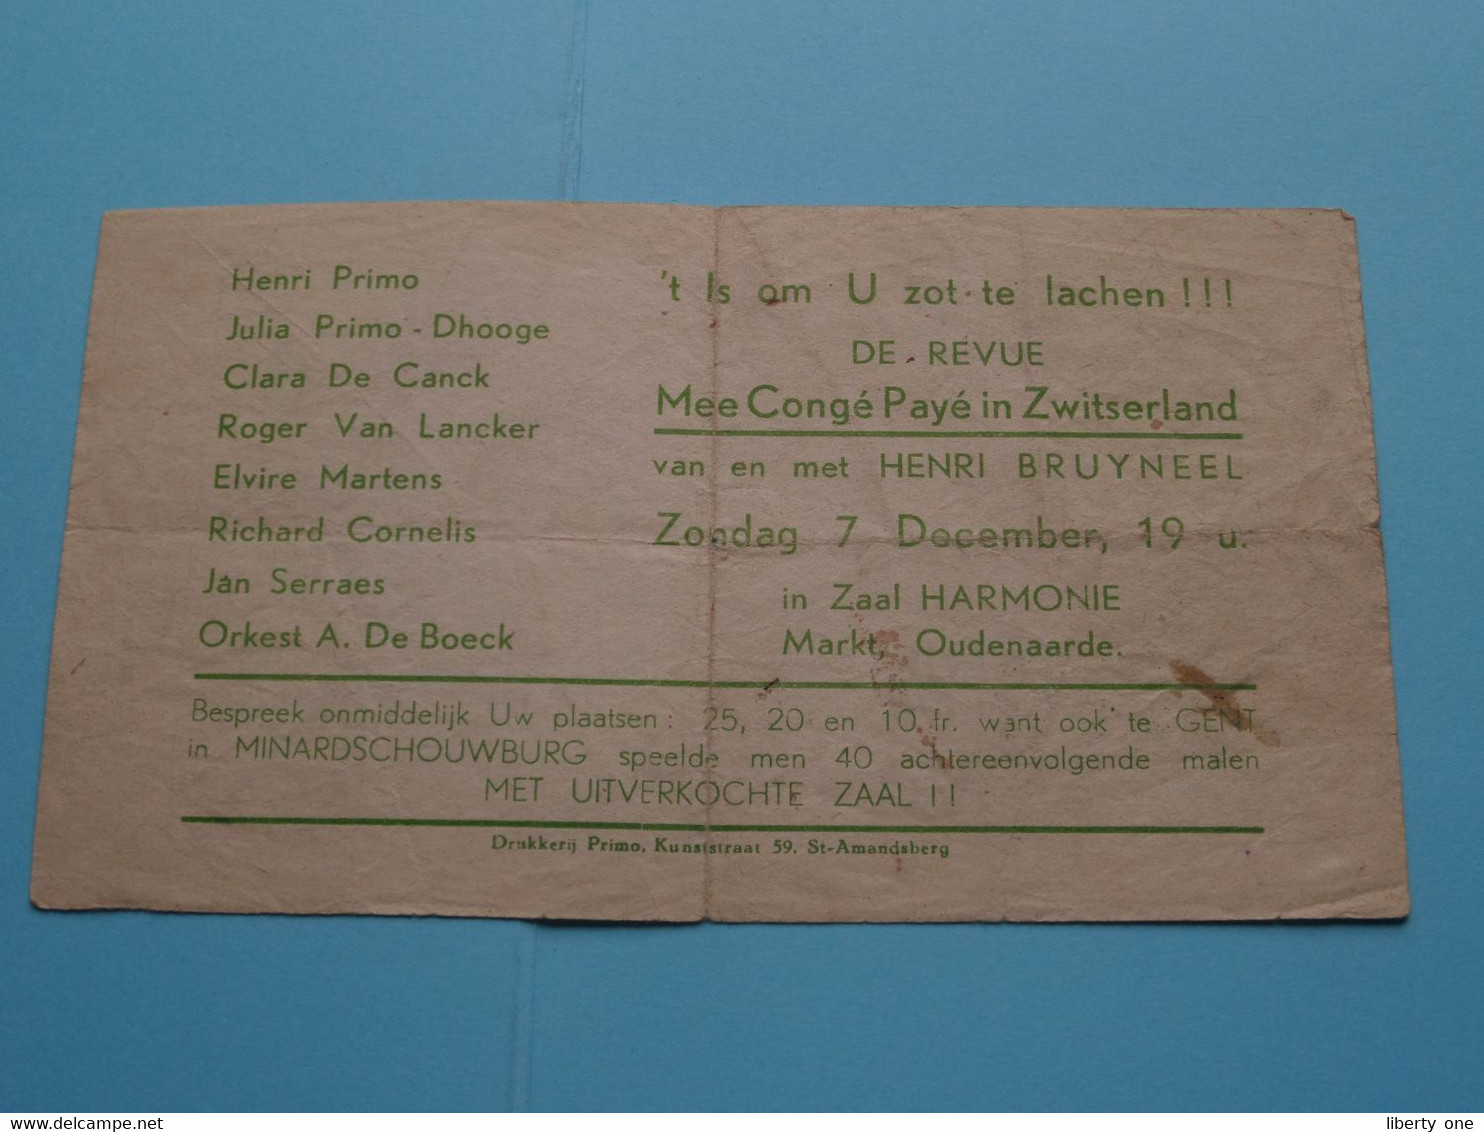 Henri Primo
Julia Primo - Dhooge
Clara De Canck
Roger Van Lancker
Elvire Martens
Richard Cornelis
Jan Serraes
Orkest A. De Boeck
't Is om U zot te lachen !!!
DE REVUE
Mee Congé Payé in Zwitserland
van en met HENRI BRUYNEEL
Zondag 7 December, 19 u.
in Zaal HARMONIE
Markt, Oudenaarde.
Bespreek onmiddelijk Uw plaatsen : 25, 20 en 10 fr. want ook te GENT
in MINARDSCHOUWBURG speelde men 40 achtereenvolgende malen
MET UITVERKOCHTE ZAAL !!
Drukkerij Primo, Kunststraat 59, St-Amandsberg
delcampe.net
liberty one